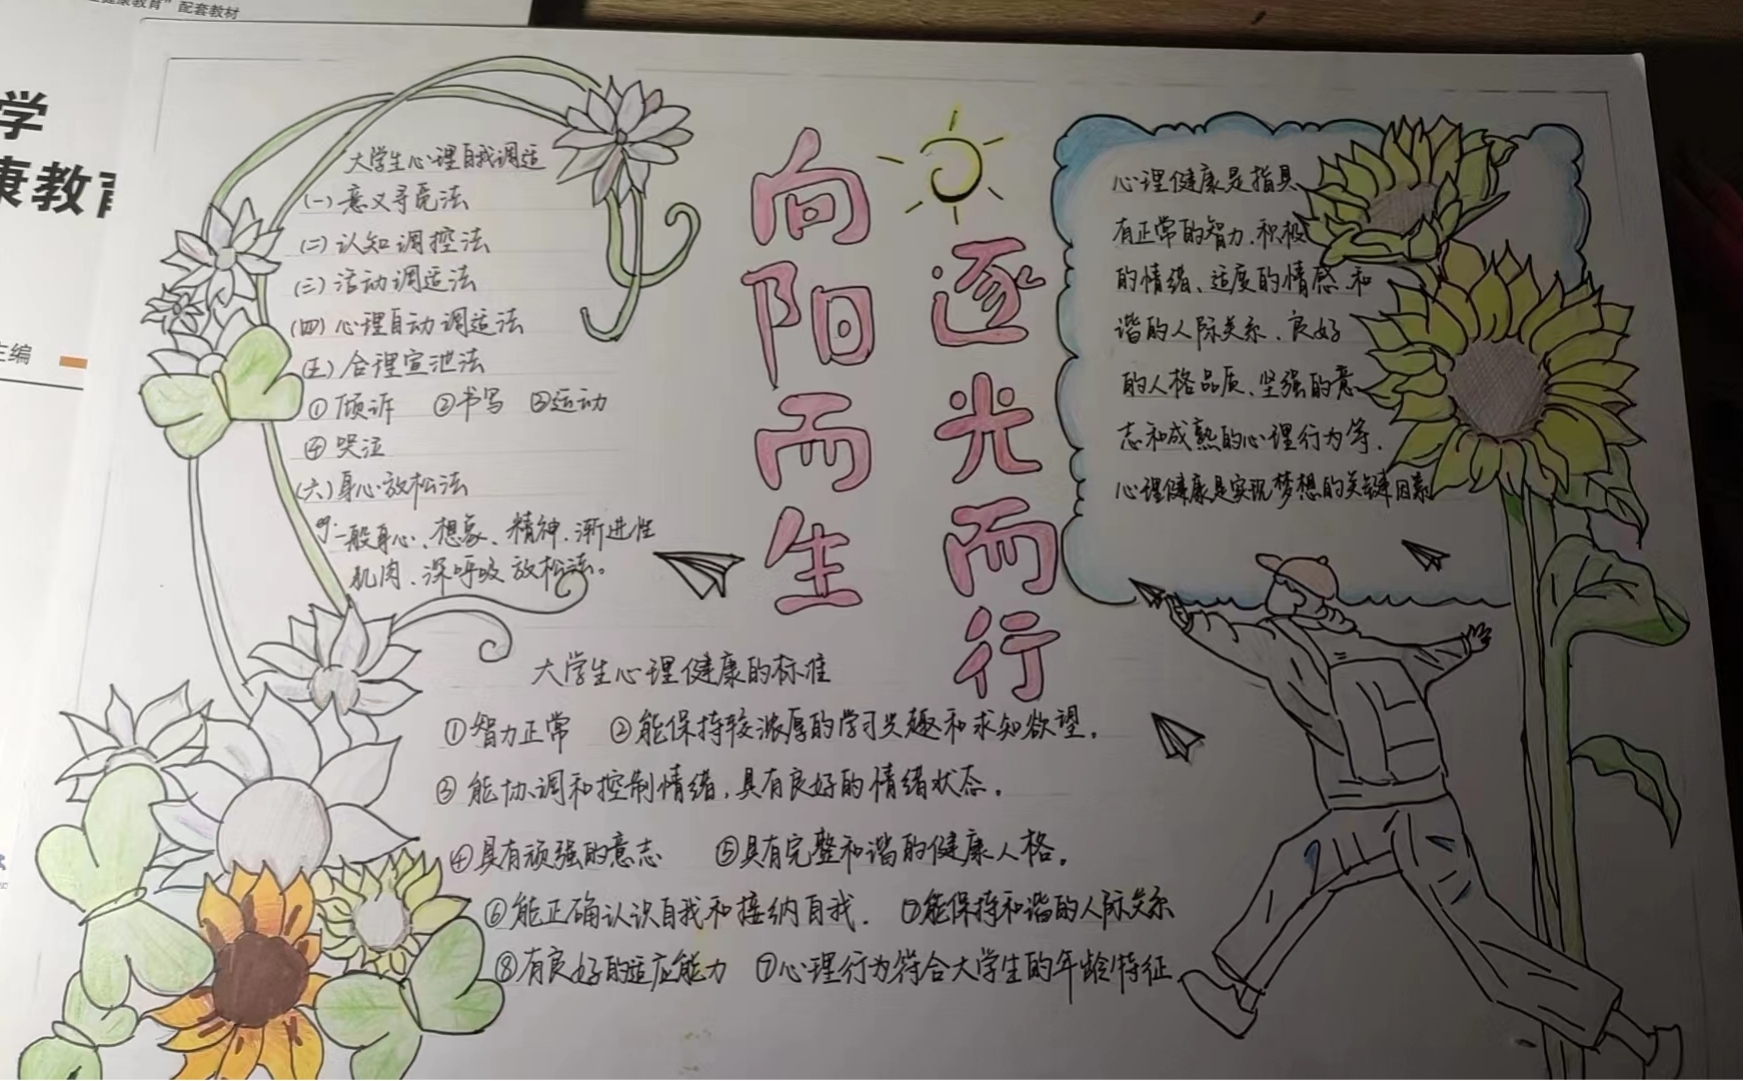 健康教育”配套教材
学
康教育
主编
大学生心理自我调适
(一)意义寻觅法
(二)认知调控法
(三)活动调适法
(四)心理自动调适法
(五)合理宣泄法
①倾诉 ②书写 ③运动
④哭泣
(六)身心放松法
一般身心、想象、精神、渐进性
肌肉、深呼吸放松法。
向阳而生
逐光而行
心理健康是指具
有正常的智力、积极
的情绪、适度的情感、和
谐的人际关系、良好
的人格品质、坚强的意
志和成熟的心理行为等.
心理健康是实现梦想的关键因素
大学生心理健康的标准
①智力正常 ②能保持较浓厚的学习兴趣和求知欲望。
③能协调和控制情绪,具有良好的情绪状态。
④具有顽强的意志 ⑤具有完整和谐的健康人格。
⑥能正确认识自我和接纳自我. ⑦能保持和谐的人际关系
⑧有良好的适应能力 ⑦心理行为符合大学生的年龄特征